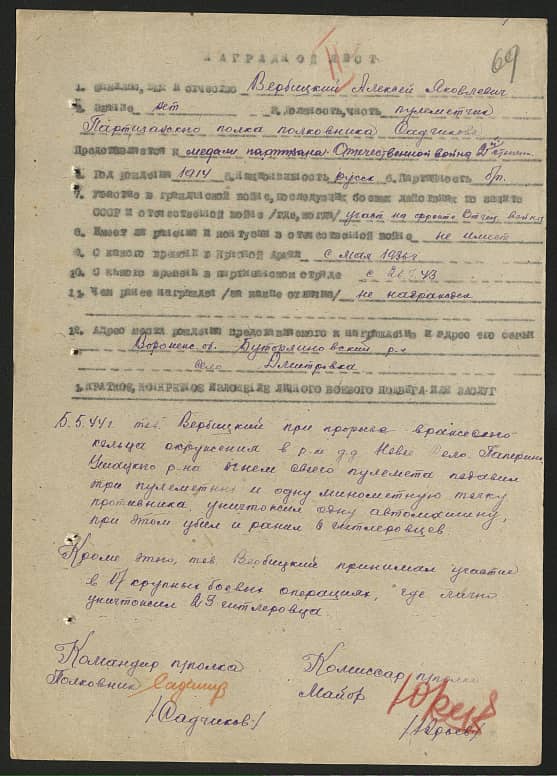 69
НАГРАДНОЙ ЛИСТ
1. Фамилия, имя и отчество Вербицкий Алексей Яковлевич
2. Звание нет 3. Должность, часть пулеметчик
Партизанского полка полковника Садчикова
Представляется к медали партизана Отечественной война 2й степени
4. Год рождения 1914 5. Национальность русск 6. Партийность б/п.
7. Участие в гражданской войне, последующих боевых действиях по защите
СССР и отечественной войне /где, когда/ участ на фронте Отеч. войны
8. Имеет ли ранения и контузии в отечественной войне не имеет
9. С какого времени в Красной Армии с мая 1936г
10. С какого времени в партизанском отряде с 43
11. Чем ранее награжден /за какие отличия/ не награжден
12. Адрес места рождения представляемого к награждению и адрес его семьи
Воронежс. об. Бутурлиновский р-н
село Дмитровка
1. КРАТКОЕ, КОНКРЕТНОЕ ИЗЛОЖЕНИЕ ЛИЧНОГО БОЕВОГО ПОДВИГА ИЛИ ЗАСЛУГ
5.5.44г тов. Вербицкий при прорыве вражеского
кольца окружения в р-не д.д. Новое Село, Паперино
Ушацкого р-на огнем своего пулемета подавил
три пулеметных и одну минометную точку
противника, уничтожил одну автомашину,
при этом убил и ранил 6 гитлеровцев.
Кроме этого, тов. Вербицкий принимал участие
в 17 крупных боевых операциях, где лично
уничтожил 29 гитлеровца.
Командир п/полка
Комиссар п/полка
Полковник
Майор
/Садчиков/